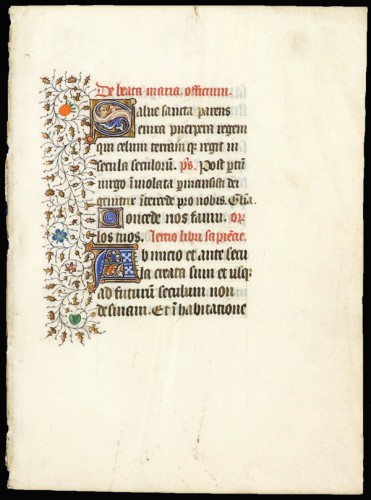 De beata maria. officium.
Salve sancta parens
enixa puerpera regem
qui celum terram q̄ regit in
secula seculorū. p̄s. Post ptū
virgo īviolata pmansisti dei
genitrix ītercede pro nobis. Gl̄ia.
Concede nos famu. or̄.
los tuos. Lectio libri sapiencie.
Ab inicio et ante secu
la creata sum et usq;
ad futurū seculum non
desinam. Et ī habitatione